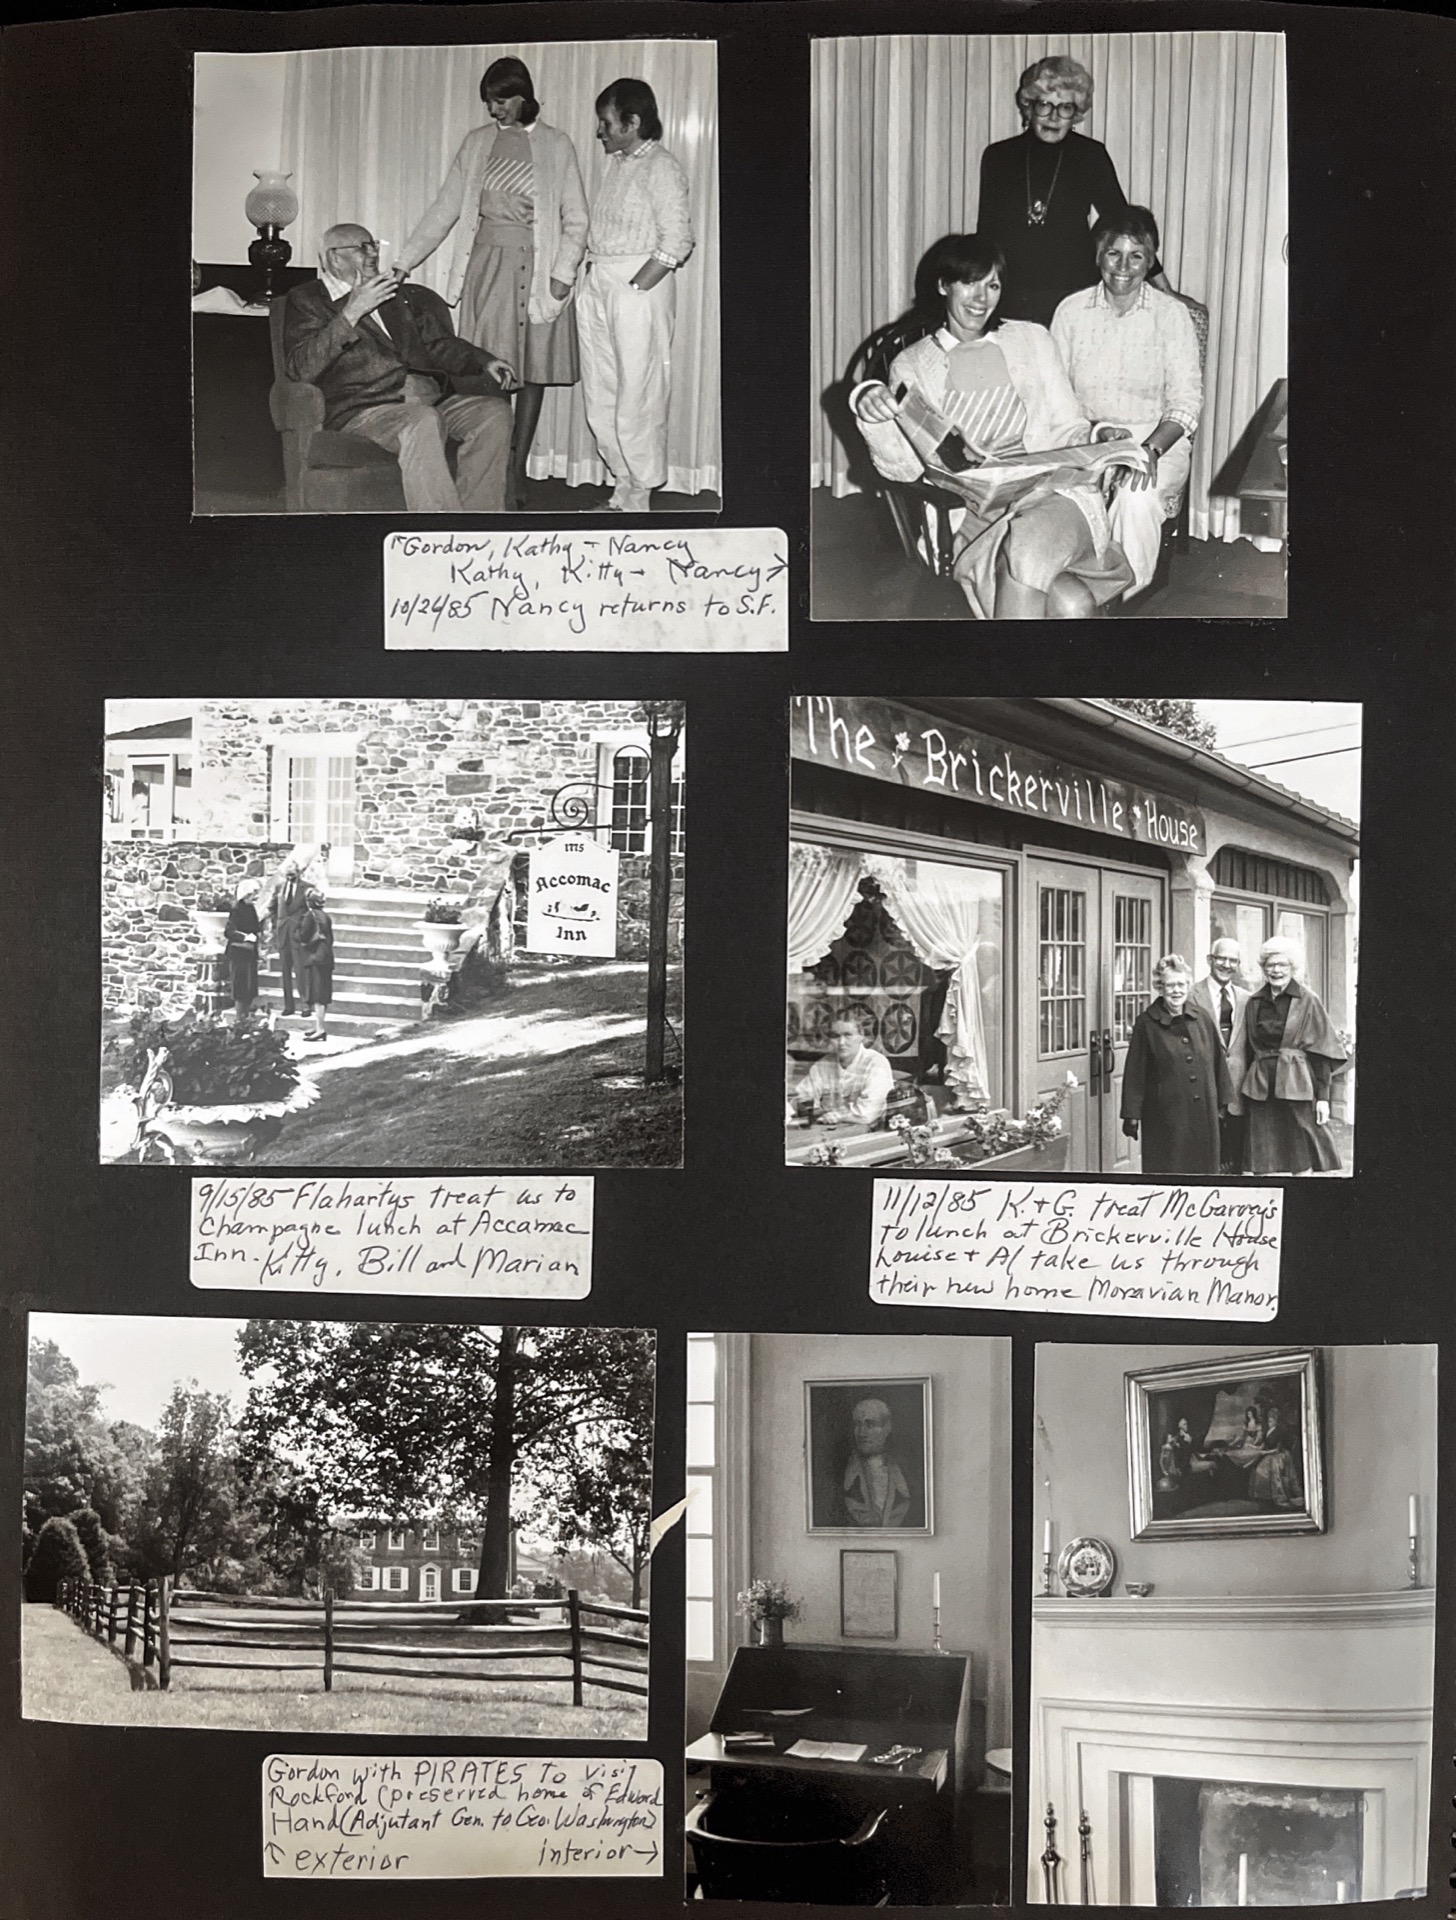 ↑Gordon, Kathy, + Nancy
Kathy, Kitty + Nancy→
10/24/85 Nancy returns to S.F.
1775
Accomac
Inn
The Brickerville House
9/15/85 Flahartys treat us to
Champagne lunch at Accamac
Inn - Kitty, Bill and Marian
11/12/85 K. + G. treat McGarvey's
to lunch at Brickerville House
Louise + Al take us through
their new home Moravian Manor.
Gordon with PIRATES To Visit
Rockford (preserved home of Edward
Hand (Adjutant Gen. to Geo. Washington)
↑ exterior interior→